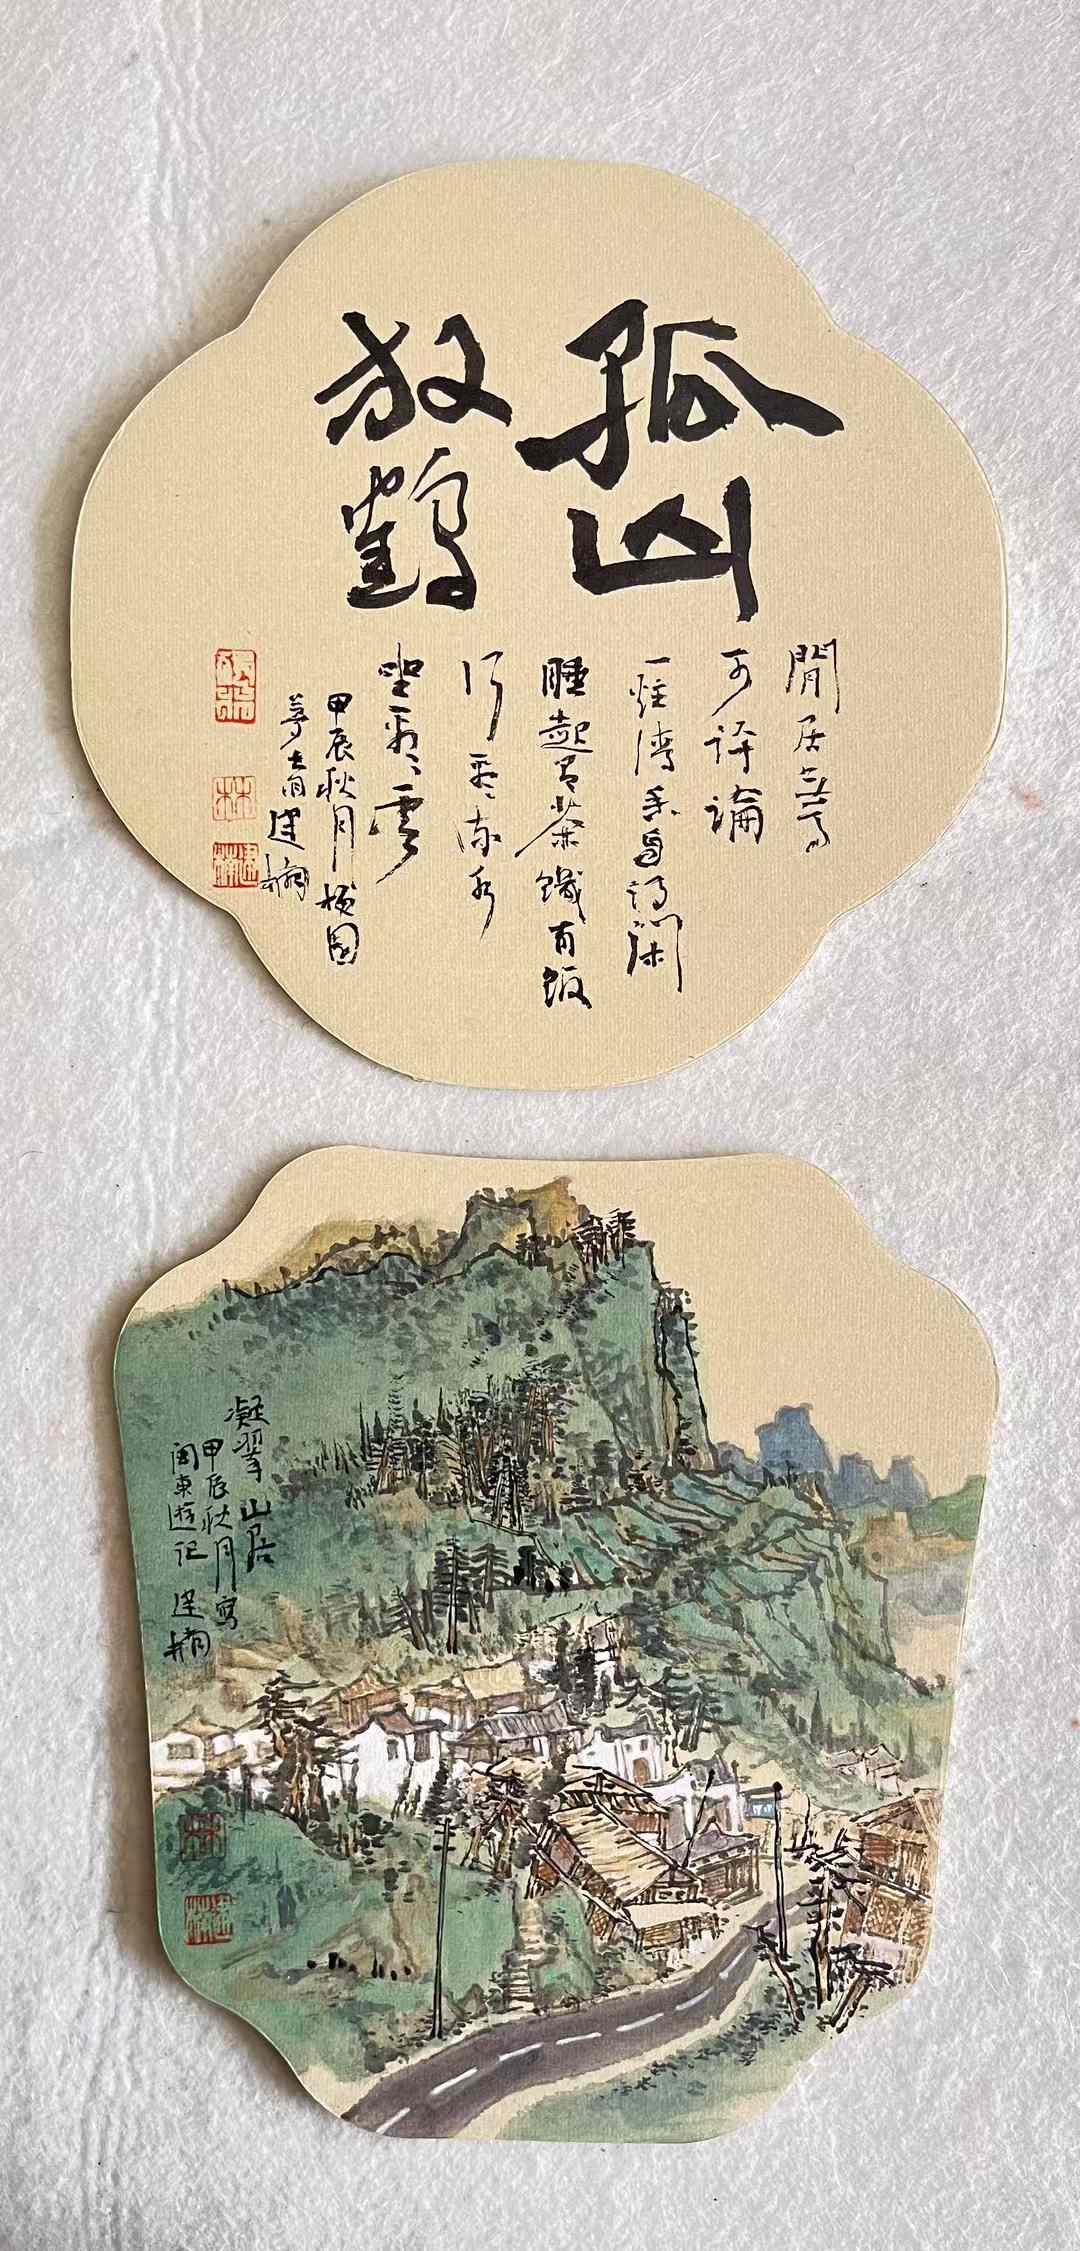 孤山
放鶴
閒居無事
可評論
一炷清香自得閑
睡起有茶饑有飯
行看流水
坐看雲
甲辰秋月
建楠
林
建楠
凝翠山居
甲辰秋月寫
閩東遊記 建楠
林
建楠